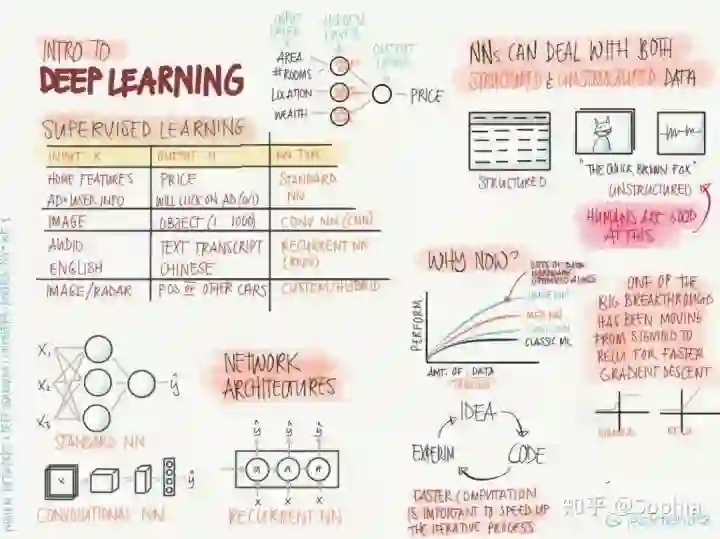 INTRO TO
DEEP LEARNING
INPUT LAYER
HIDDEN LAYER
OUTPUT LAYER
AREA
#ROOMS
LOCATION
WEALTH
PRICE
SUPERVISED LEARNING
INPUT X OUTPUT Y NN TYPE
HOME FEATURES PRICE STANDARD
AD+USER INFO WILL CLICK ON AD (0/1) NN
IMAGE OBJECT (1 1000) CONV NN (CNN)
AUDIO TEXT TRANSCRIPT RECURRENT NN
ENGLISH CHINESE (RNN)
IMAGE/RADAR POS OF OTHER CARS CUSTOM/HYBRID
NNs CAN DEAL WITH BOTH
STRUCTURED & UNSTRUCTURED DATA
STRUCTURED
"THE QUICK BROWN FOX"
UNSTRUCTURED
HUMANS ARE GOOD
AT THIS
WHY NOW?
PERFORM
CLASSIC ML
AMT. OF DATA
ONE OF THE
BIG BREAKTHROUGHS
HAS BEEN MOVING
FROM SIGMOID TO
RELU FOR FASTER
GRADIENT DESCENT
SIGMOID
RELU
IDEA
CODE
EXPERIM
FASTER COMPUTATION
IS IMPORTANT TO SPEED UP
THE ITERATIVE PROCESS
X₁
X₂
X₃
ŷ
STANDARD NN
NETWORK
ARCHITECTURES
X
ŷ
CONVOLUTIONAL NN
ŷ ŷ ŷ
X X X
RECURRENT NN
知乎 @Sophia